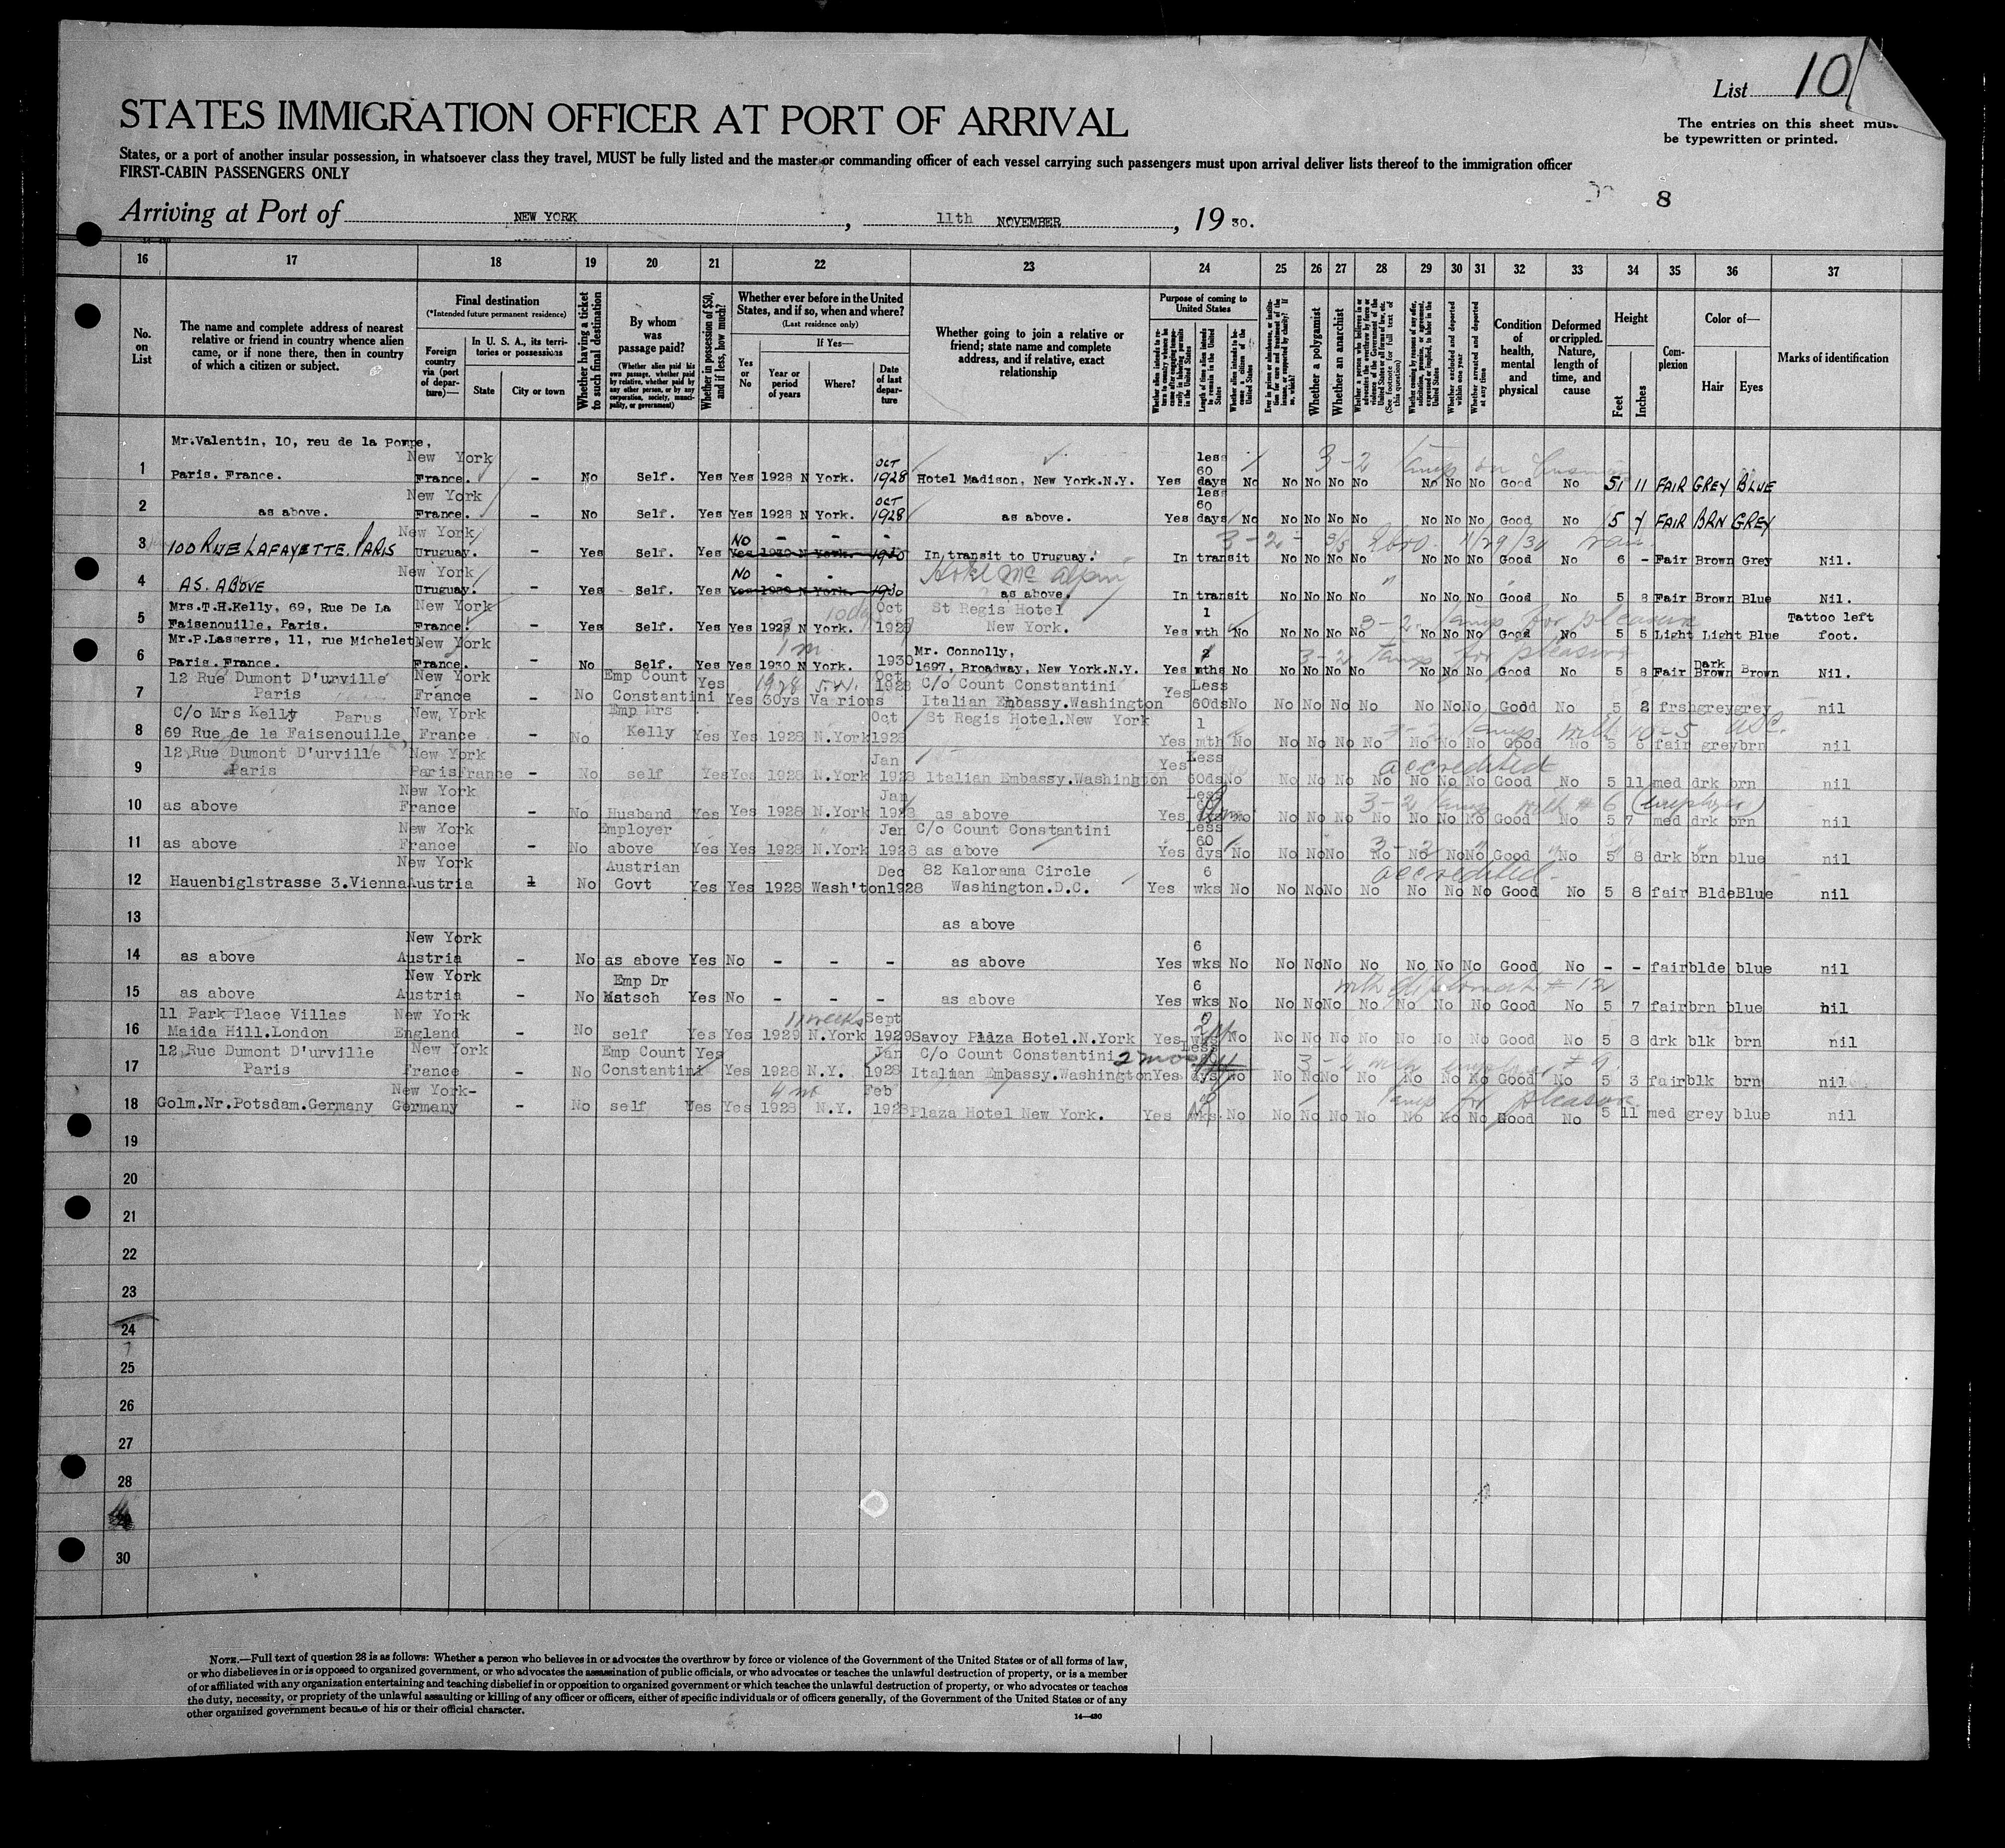 List 10
STATES IMMIGRATION OFFICER AT PORT OF ARRIVAL
The entries on this sheet must
be typewritten or printed.
States, or a port of another insular possession, in whatsoever class they travel, MUST be fully listed and the master or commanding officer of each vessel carrying such passengers must upon arrival deliver lists thereof to the immigration officer
FIRST-CABIN PASSENGERS ONLY
8
Arriving at Port of NEW YORK, 11th NOVEMBER, 19 30.
16 17 18 19 20 21 22 23 24 25 26 27 28 29 30 31 32 33 34 35 36 37
No. on List
The name and complete address of nearest relative or friend in country whence alien came, or if none there, then in country of which a citizen or subject.
Final destination
(*Intended future permanent residence)
Foreign country via (port of departure)—
In U. S. A., its territories or possessions
State
City or town
Whether having a ticket to such final destination
By whom was passage paid?
(Whether alien paid his own passage, whether paid by relative, whether paid by any other person, or by any corporation, society, municipality, or government)
Whether in possession of $50, and if less, how much?
Whether ever before in the United States, and if so, when and where?
(Last residence only)
Yes or No
If Yes—
Year or period of years
Where?
Date of last departure
Whether going to join a relative or friend; state name and complete address, and if relative, exact relationship
Purpose of coming to United States
Length of time alien intends to remain in the United States
Whether alien intends to become a citizen of the United States
Whether a polygamist
Whether an anarchist
(See footnote for full text of this question)
Whether excluded and deported within one year
Whether arrested and deported at any time
Condition of health, mental and physical
Deformed or crippled. Nature, length of time, and cause
Height
Feet
Inches
Complexion
Color of—
Hair
Eyes
Marks of identification
Mr.Valentin, 10, reu de la Pompe,
New York less
1 Paris. France. France. - No Self. Yes Yes 1928 N York. OCT 1928 Hotel Madison, New York.N.Y. Yes 60 days No No No No No No No No Good No 5 11 FAIR GREY BLUE
New York less
2 as above. France. - No Self. Yes Yes 1928 N York. OCT 1928 as above. Yes 60 days No No No No No No No No Good No 5 4 FAIR BRN GREY
New York NO - - -
3 100 RUE LAFAYETTE. PARIS Uruguay. - Yes Self. Yes Yes 1930 N York. 1930 In transit to Uruguay. In transit No No No No No No No Good No 6 - Fair Brown Grey Nil.
New York NO - - Hotel Mc Alpin
4 AS. ABOVE Uruguay. - Yes Self. Yes Yes 1930 N York. 1930 as above. In transit No No No No No No No Good No 5 8 Fair Brown Blue Nil.
Mrs.T.H.Kelly, 69, Rue De La New York Oct St Regis Hotel 1 Tattoo left
5 Faisenouille, Paris. France. - Yes Self. Yes Yes 1927 N York. 1927 New York. Yes mth No No No No No No No No Good No 5 5 Light Light Blue foot.
Mr.P.Lasserre, 11, rue Michelet New York Mr. Connolly, Dark
6 Paris. France. France. - No Self. Yes Yes 1930 N York. 1930 1697, Broadway, New York.N.Y. Yes mths No No No No No No No No Good No 5 8 Fair Brown Brown Nil.
12 Rue Dumont D'urville New York Emp Count Yes 1928 Oct C/o Count Constantini Less
7 Paris France - No Constantini Yes 30ys Various 1928 Italian Embassy.Washington Yes 60ds No No No No No No No No Good No 5 2 frsh grey grey nil
C/o Mrs Kelly Parus New York Emp Mrs Oct St Regis Hotel.New York 1
8 69 Rue de la Faisenouille, France - No Kelly Yes Yes 1928 N.York 1928 Yes mth No No No No No No No No Good No 5 6 fair grey brn nil
12,Rue Dumont D'urville New York Jan Less accredited
9 Paris Paris France - No self Yes Yes 1928 N.York 1928 Italian Embassy.Washington Yes 60ds No No No No No No No No Good No 5 11 med drk brn nil
New York Jan Less
10 as above France - No Husband Yes Yes 1928 N.York 1928 as above Yes No No No No No No No Good No 5 7 med drk brn nil
New York Employer Jan C/o Count Constantini Less 60
11 as above France - No above Yes Yes 1928 N.York 1928 as above Yes dys No No No No No No No No Good No 5 8 drk brn blue nil
New York Austrian Dec 82 Kalorama Circle 6 accredited
12 Hauenbiglstrasse 3.Vienna Austria - No Govt Yes Yes 1928 Wash'ton 1928 Washington.D.C. Yes wks No No No No No No No No Good No 5 8 fair Blde Blue nil
13 as above
New York 6
14 as above Austria - No as above Yes No - - - as above Yes wks No No No No No No No No Good No - - fair blde blue nil
New York Emp Dr 6 with diplomat # 12
15 as above Austria - No Matsch Yes No - - - as above Yes wks No No No No No No No No Good No 5 7 fair brn blue nil
11 Park Place Villas New York 11 weeks Sept
16 Maida Hill.London England - No self Yes Yes 1929 N.York 1929 Savoy Plaza Hotel.N.York Yes wks No No No No No No No No Good No 5 8 drk blk brn nil
12,Rue Dumont D'urville New York Emp Count Yes Jan C/o Count Constantini 2 mos Less
17 Paris France - No Constantini Yes 1928 N.Y. 1928 Italian Embassy.Washington Yes dys No No No No No No No No Good No 5 3 fair blk brn nil
New York- Feb
18 Golm.Nr.Potsdam.Germany Germany - No self Yes Yes 1928 N.Y. 1928 Plaza Hotel New York. Yes wks No No No No No No No No Good No 5 11 med grey blue nil
19
20
21
22
23
24
25
26
27
28
30
NOTE.—Full text of question 28 is as follows: Whether a person who believes in or advocates the overthrow by force or violence of the Government of the United States or of all forms of law,
or who disbelieves in or is opposed to organized government, or who advocates the assassination of public officials, or who advocates or teaches the unlawful destruction of property, or is a member
of or affiliated with any organization entertaining and teaching disbelief in or opposition to organized government or which teaches the unlawful destruction of property, or who advocates or teaches
the duty, necessity, or propriety of the unlawful assaulting or killing of any officer or officers, either of specific individuals or of officers generally, of the Government of the United States or of any
other organized government because of his or their official character.
14—430